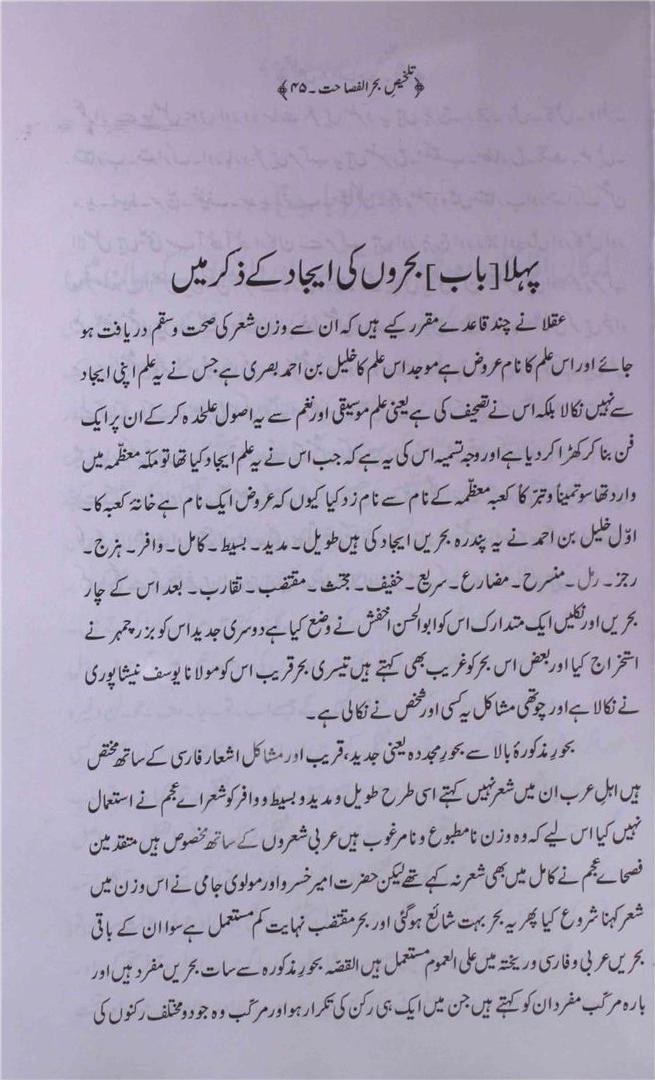 ﴿تلخیصِ بحر الفصاحت ۔ ۴۵﴾
پہلا [باب] بحروں کی ایجاد کے ذکر میں
عقلا نے چند قاعدے مقرر کیے ہیں کہ ان سے وزن شعر کی صحت و سقم دریافت ہو
جائے اور اس علم کا نام عروض ہے موجد اس علم کا خلیل بن احمد بصری ہے جس نے یہ علم اپنی ایجاد
سے نہیں نکالا بلکہ اس نے تصحیف کی ہے یعنی علم موسیقی اور نغم سے یہ اصول علٰحدہ کر کے ان پر ایک
فن بنا کر کھڑا کر دیا ہے اور وجہ تسمیہ اس کی یہ ہے کہ جب اس نے یہ علم ایجاد کیا تھا تو مکّہ معظّمہ میں
وارد تھا سو تمیناً و تبرّکاً کعبہ معظّمہ کے نام سے نام زد کیا کیوں کہ عروض ایک نام ہے خانۂ کعبہ کا۔
اوّل خلیل بن احمد نے یہ پندرہ بحریں ایجاد کی ہیں طویل۔ مدید۔ بسیط۔ کامل۔ وافر۔ ہزج۔
رجز۔ رمل۔ منسرح۔ مضارع۔ سریع۔ خفیف۔ مجتث۔ مقتضب۔ تقارب۔ بعد اس کے چار
بحریں اور نکلیں ایک متدارک اس کو ابوالحسن اخفش نے وضع کیا ہے دوسری جدید اس کو بزرچمہر نے
استخراج کیا اور بعض اس بحر کو غریب بھی کہتے ہیں تیسری بحر قریب اس کو مولانا یوسف نیشاپوری
نے نکالا ہے اور چوتھی مشاکل یہ کسی اور شخص نے نکالی ہے۔
بحورِ مذکورۂ بالا سے بحورِ مجددہ یعنی جدید، قریب اور مشاکل اشعار فارسی کے ساتھ مختص
ہیں اہلِ عرب ان میں شعر نہیں کہتے اسی طرح طویل و مدید و بسیط و وافر کو شعراے عجم نے استعمال
نہیں کیا اس لیے کہ وہ وزن نامطبوع و نامرغوب ہیں عربی شعروں کے ساتھ مخصوص ہیں متقدمین
فصحاے عجم نے کامل میں بھی شعر نہ کہے تھے لیکن حضرت امیر خسرو اور مولوی جامی نے اس وزن میں
شعر کہنا شروع کیا پھر یہ بحر بہت شائع ہو گئی اور بحر مقتضب نہایت کم مستعمل ہے سوا ان کے باقی
بحریں عربی و فارسی و ریختہ میں علی العموم مستعمل ہیں القصّہ بحورِ مذکورہ سے سات بحریں مفرد ہیں اور
بارہ مرکّب مفرد ان کو کہتے ہیں جن میں ایک ہی رکن کی تکرار ہو اور مرکّب وہ جو دو مختلف رکنوں کی